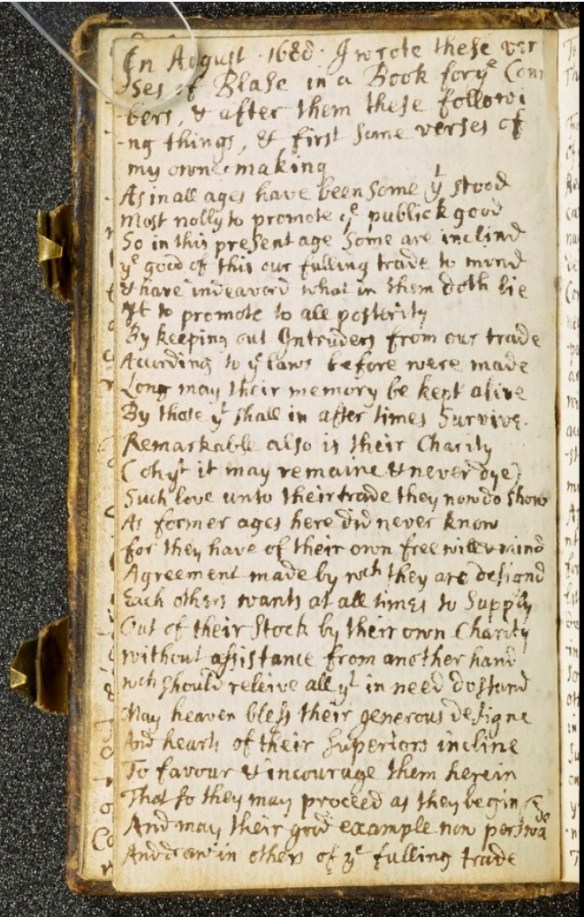 In August 1688 I wrote these ver
ses of Blase in a Book for yͤ Com
bers, & after them these followi
-ng things, & first some verses of
my owne making
As in all ages have been Some yͭ stood
Most nolly to promote yͤ publick good
So in this present age Some are inclind
yͤ good of this our fulling trade to mind
& have indeavord what in them doth lie
It to promote to all posterity
By keeping out Intruders from our trade
Acording to yͤ laws before were made
Long may their memory be kept alive
By those yͭ shall in after times Survive.
Remarkable also is their Charity
(oh yͭ it may remaine & never dye)
Such love unto their trade they now do show
As former ages here did never know
for they have of their own free will & mind
Agreement made by wch they are designd
Each others wants at all times to Supply
Out of their Stock by their own Charity
without assistance from another hand
wch should releive all yͭ in need do stand
May heaven bless their generous designe
And hearts of their Superiors incline
To favour & incourage them herein
That so they may proceed as they begin
And may their good example now perswade
And draw in others of yͤ fulling trade